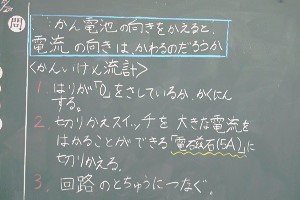 問 かん電池の向きをかえると、
電流の向きは、かわるのだろうか
<かんいけん流計>
1. はりが「0」をさしているか、かくにん
する。
2. 切りかえスイッチを大きな電流を
はかることができる「電磁石(5A)」に
切りかえる。
3. 回路のとちゅうにつなぐ。